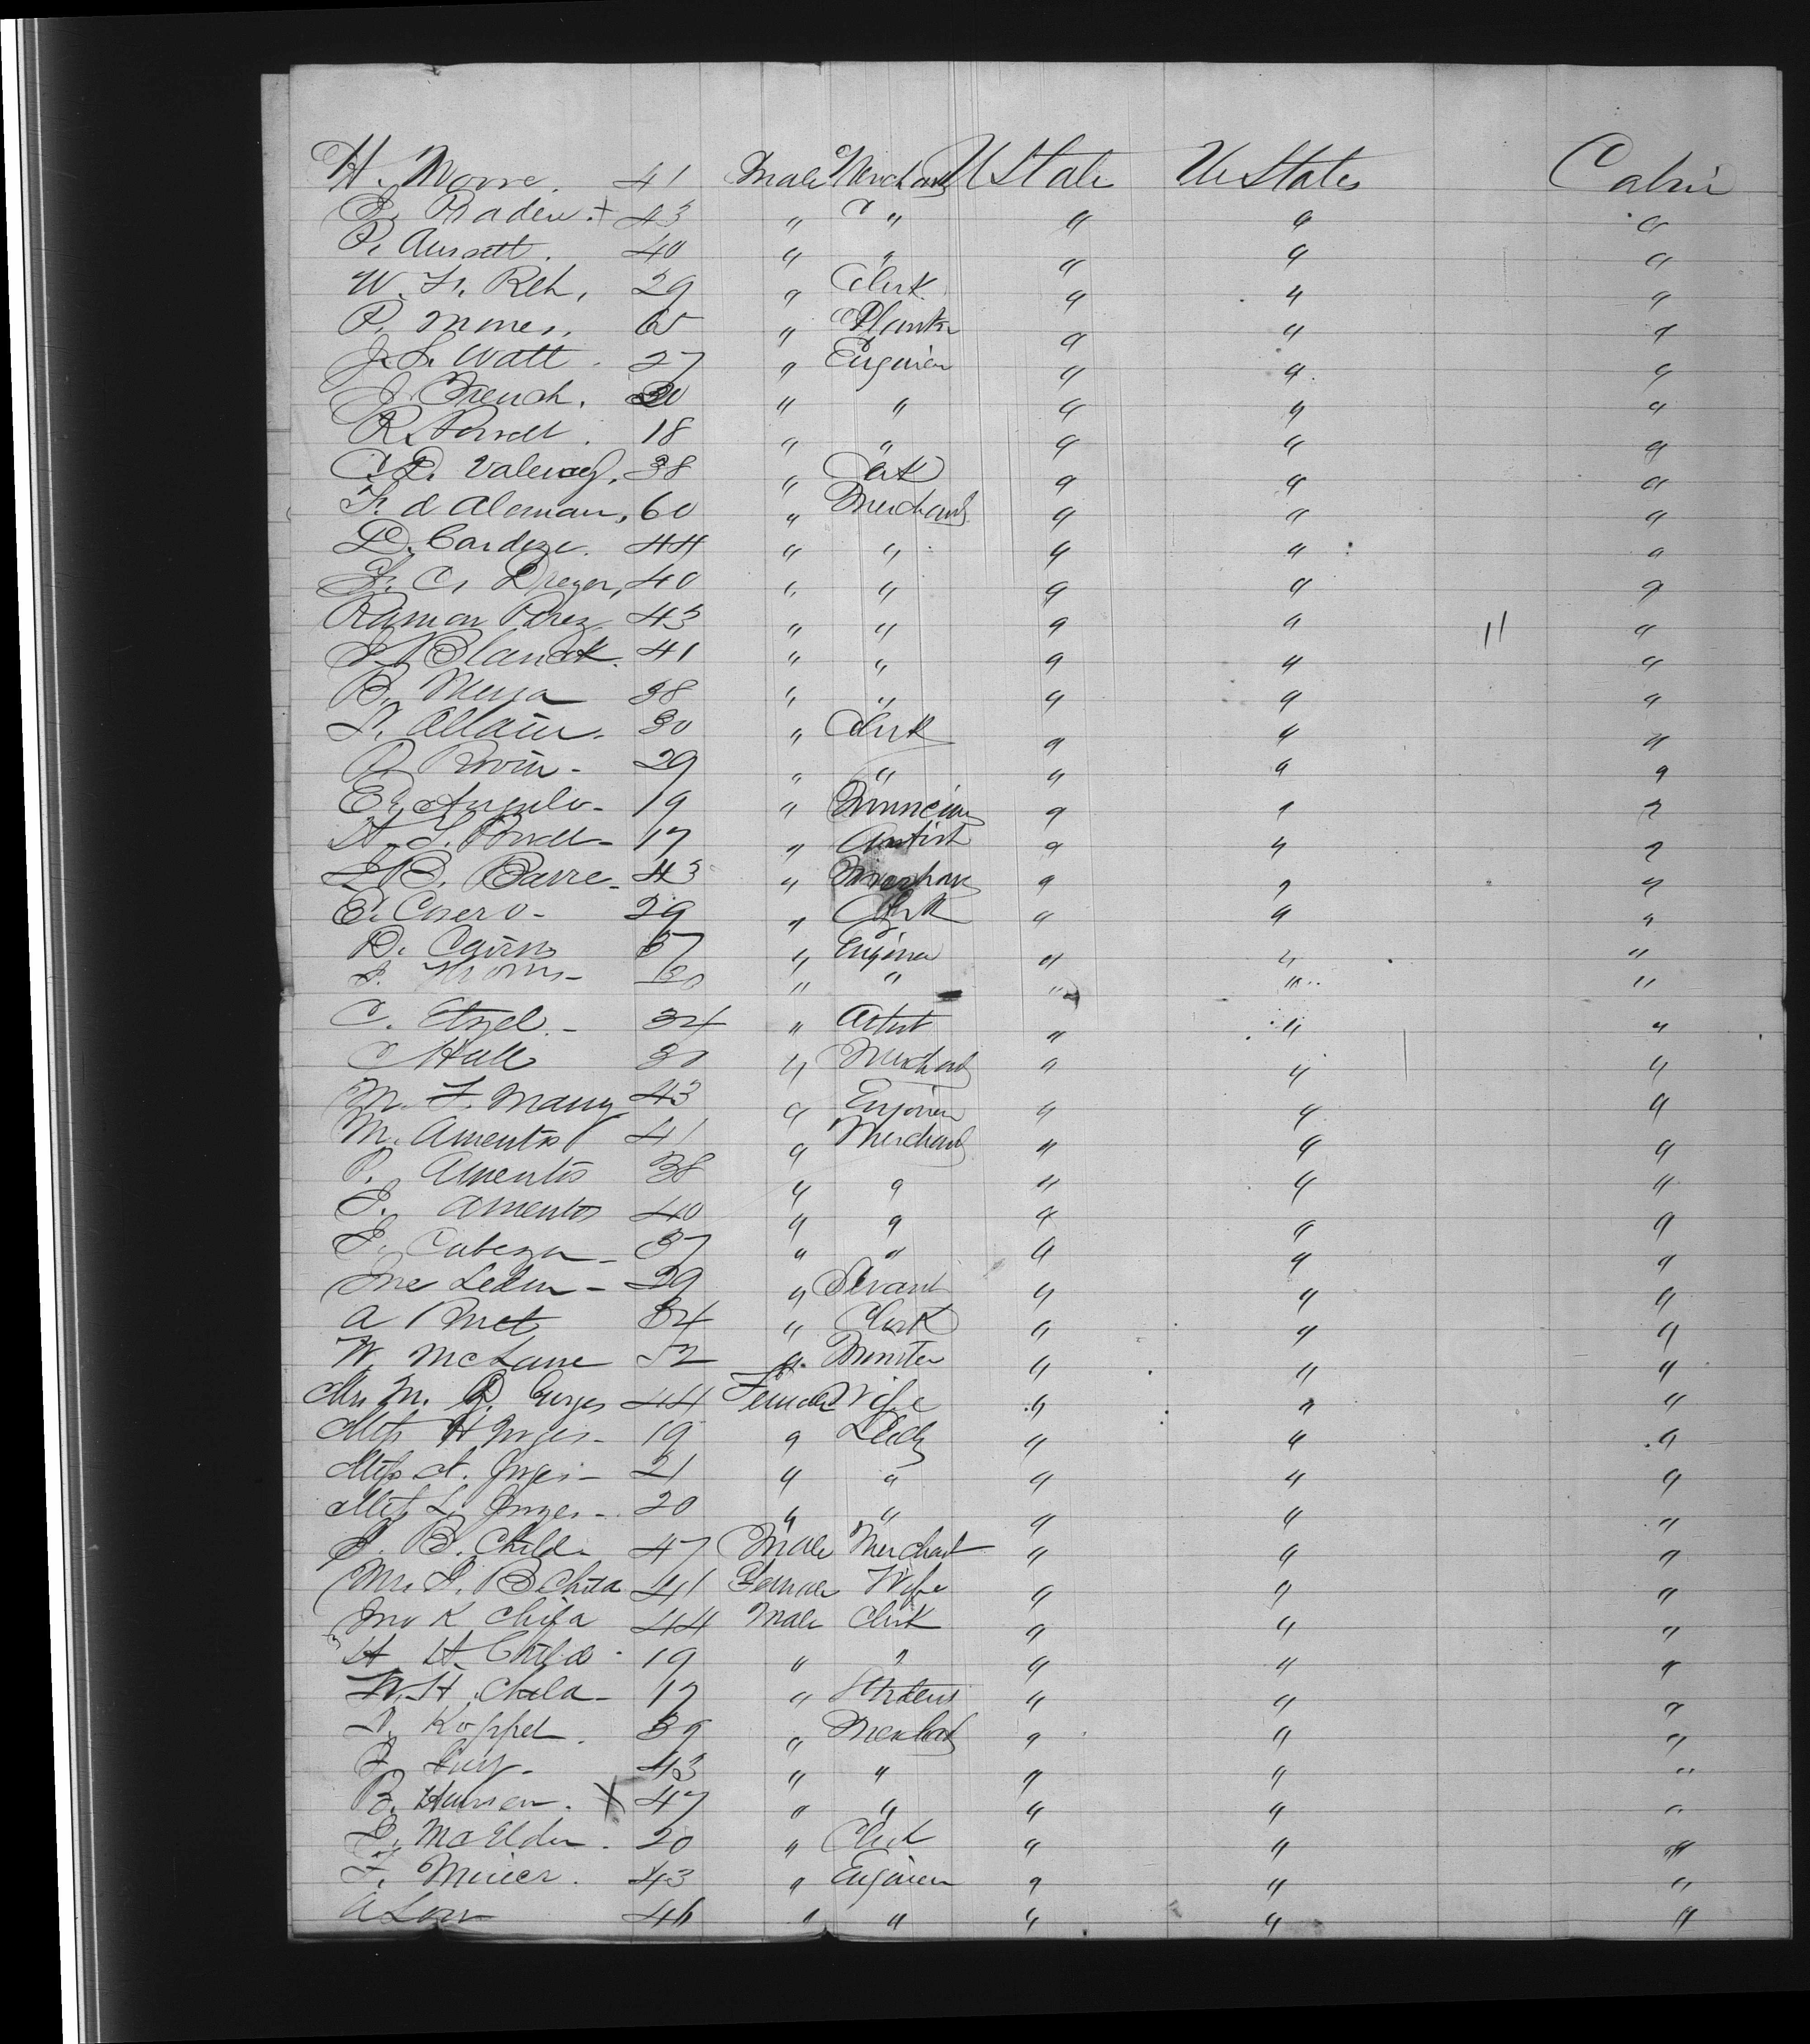 H. Moore. 41 Male Merchant U States U States Cabin
Braden + 43 " " " " "
P. 40 " " " " "
W. Fr. Reh, 29 " Clerk " " "
P. Mones. 65 " Planter " " "
J. L. Watt. 27 " Engineer " " "
J. French. 30 " " " " "
R. Powell. 18 " " " " "
38 " Clerk " " "
F. d Aleman, 60 " Merchant " " "
D. Cardeze. 44 " " " " "
F. C. Dreyer, 40 " " " " "
Ramon Perez 43 " " " " "
Blanck. 41 " " " " "
B. Meysa 38 " " " " "
Allain. 30 " Clerk " " "
29 " " " " "
E. Angulo - 19 " " " "
Powell - 17 " Artist " " "
J. B. Barre - 43 " Merchant " " "
E. Casero - 29 " Clerk " " "
D. Cairns 37 " Engineer " " "
30 " " " " "
C. Etzel. - 34 " Artist " " "
C Hall 30 " Merchant " " "
M. F. Maury 43 " Engineer " " "
M. Amentos 41 " Merchant " " "
P. Amentos 38 " " " " "
J. Amentos 40 " " " " "
J. Cabeza - 37 " " " " "
Leden - 29 " Servant " " "
A 34 " Clerk " " "
W. McLane 52 " Minister " " "
Mrs M. 44 Female Wife " " "
Miss H - 19 " Lady " " "
Miss A. - 21 " " " " "
Miss L. - 20 " " " " "
J. B. Child - 47 Male Merchant " " "
Mrs J. B Child 41 Female Wife " " "
K Child 44 Male Clerk " " "
H. H. Child - 19 " " " " "
W. H. Child - 17 " Student " " "
Koppel. 39 " Merchant " " "
43 " " " " "
B. Hansen. X 47 " " " " "
J. McElder. 20 " Clerk " " "
F. Meiier. 43 " Engineer " " "
A Low 46 " " " " "